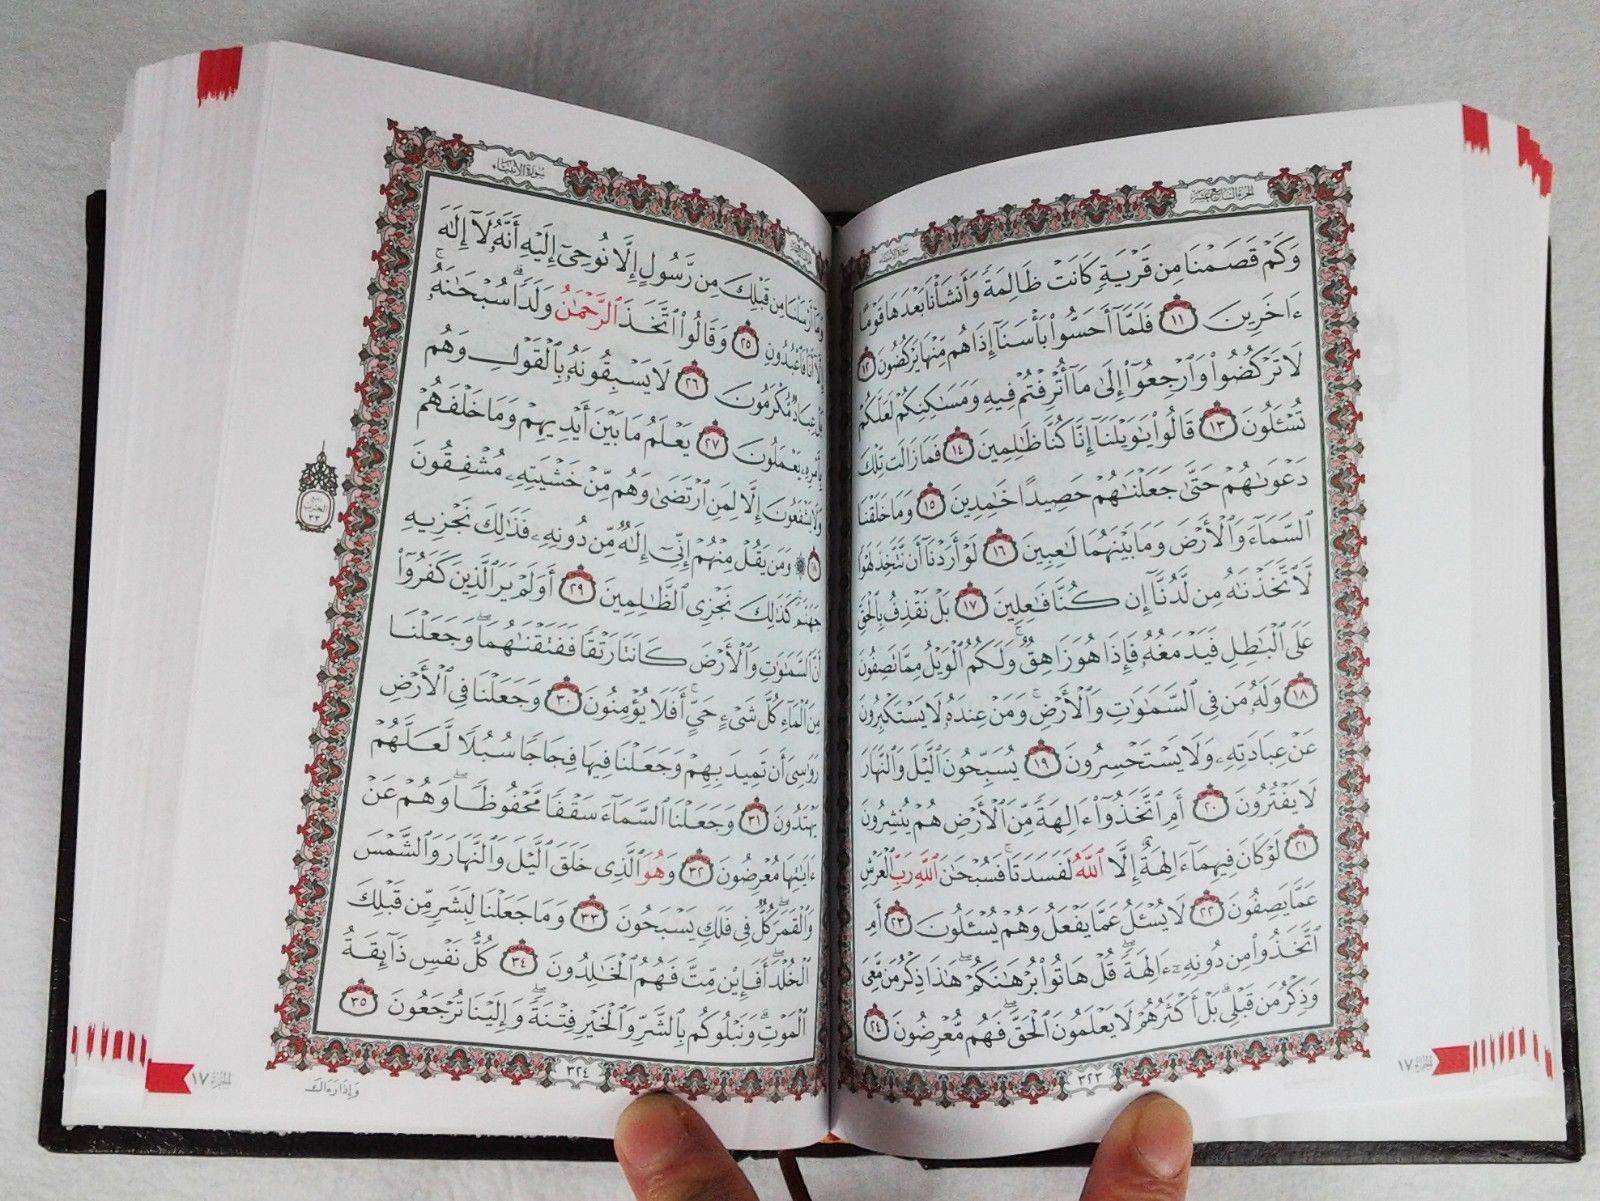 الجزء السابع عشر
سورة الأنبياء
وَكَمْ قَصَمْنَا مِن قَرْيَةٍ كَانَتْ ظَالِمَةً وَأَنشَأْنَا بَعْدَهَا قَوْمًا
ءَاخَرِينَ ١١ فَلَمَّآ أَحَسُّوا۟ بَأْسَنَآ إِذَا هُم مِّنْهَا يَرْكُضُونَ ١٢
لَا تَرْكُضُوا۟ وَٱرْجِعُوٓا۟ إِلَىٰ مَآ أُتْرِفْتُمْ فِيهِ وَمَسَـٰكِنِكُمْ لَعَلَّكُمْ
تُسْـَٔلُونَ ١٣ قَالُوا۟ يَـٰوَيْلَنَآ إِنَّا كُنَّا ظَـٰلِمِينَ ١٤ فَمَا زَالَت تِّلْكَ
دَعْوَىٰهُمْ حَتَّىٰ جَعَلْنَـٰهُمْ حَصِيدًا خَـٰمِدِينَ ١٥ وَمَا خَلَقْنَا
ٱلسَّمَآءَ وَٱلْأَرْضَ وَمَا بَيْنَهُمَا لَـٰعِبِينَ ١٦ لَوْ أَرَدْنَآ أَن نَّتَّخِذَ لَهْوًا
لَّٱتَّخَذْنَـٰهُ مِن لَّدُنَّآ إِن كُنَّا فَـٰعِلِينَ ١٧ بَلْ نَقْذِفُ بِٱلْحَقِّ
عَلَى ٱلْبَـٰطِلِ فَيَدْمَغُهُۥ فَإِذَا هُوَ زَاهِقٌ ۚ وَلَكُمُ ٱلْوَيْلُ مِمَّا تَصِفُونَ
١٨ وَلَهُۥ مَن فِى ٱلسَّمَـٰوَٰتِ وَٱلْأَرْضِ ۚ وَمَنْ عِندَهُۥ لَا يَسْتَكْبِرُونَ
عَنْ عِبَادَتِهِۦ وَلَا يَسْتَحْسِرُونَ ١٩ يُسَبِّحُونَ ٱلَّيْلَ وَٱلنَّهَارَ
لَا يَفْتُرُونَ ٢٠ أَمِ ٱتَّخَذُوٓا۟ ءَالِهَةً مِّنَ ٱلْأَرْضِ هُمْ يُنشِرُونَ
٢١ لَوْ كَانَ فِيهِمَآ ءَالِهَةٌ إِلَّا ٱللَّهُ لَفَسَدَتَا ۚ فَسُبْحَـٰنَ ٱللَّهِ رَبِّ ٱلْعَرْشِ
عَمَّا يَصِفُونَ ٢٢ لَا يُسْـَٔلُ عَمَّا يَفْعَلُ وَهُمْ يُسْـَٔلُونَ ٢٣ أَمِ
ٱتَّخَذُوا۟ مِن دُونِهِۦٓ ءَالِهَةً ۖ قُلْ هَاتُوا۟ بُرْهَـٰنَكُمْ ۖ هَـٰذَا ذِكْرُ مَن مَّعِىَ
وَذِكْرُ مَن قَبْلِى ۗ بَلْ أَكْثَرُهُمْ لَا يَعْلَمُونَ ٱلْحَقَّ ۖ فَهُم مُّعْرِضُونَ ٢٤
٣٢٣
الجزء ١٧
سورة الأنبياء
وَمَآ أَرْسَلْنَا مِن قَبْلِكَ مِن رَّسُولٍ إِلَّا نُوحِىٓ إِلَيْهِ أَنَّهُۥ لَآ إِلَـٰهَ
إِلَّآ أَنَا۠ فَٱعْبُدُونِ ٢٥ وَقَالُوا۟ ٱتَّخَذَ ٱلرَّحْمَـٰنُ وَلَدًا ۗ سُبْحَـٰنَهُۥ ۚ
بَلْ عِبَادٌ مُّكْرَمُونَ ٢٦ لَا يَسْبِقُونَهُۥ بِٱلْقَوْلِ وَهُم
بِأَمْرِهِۦ يَعْمَلُونَ ٢٧ يَعْلَمُ مَا بَيْنَ أَيْدِيهِمْ وَمَا خَلْفَهُمْ
وَلَا يَشْفَعُونَ إِلَّا لِمَنِ ٱرْتَضَىٰ وَهُم مِّنْ خَشْيَتِهِۦ مُشْفِقُونَ
٢٨ ۞ وَمَن يَقُلْ مِنْهُمْ إِنِّىٓ إِلَـٰهٌ مِّن دُونِهِۦ فَذَٰلِكَ نَجْزِيهِ
جَهَنَّمَ ۚ كَذَٰلِكَ نَجْزِى ٱلظَّـٰلِمِينَ ٢٩ أَوَلَمْ يَرَ ٱلَّذِينَ كَفَرُوٓا۟
أَنَّ ٱلسَّمَـٰوَٰتِ وَٱلْأَرْضَ كَانَتَا رَتْقًا فَفَتَقْنَـٰهُمَا ۖ وَجَعَلْنَا
مِنَ ٱلْمَآءِ كُلَّ شَىْءٍ حَىٍّ ۖ أَفَلَا يُؤْمِنُونَ ٣٠ وَجَعَلْنَا فِى ٱلْأَرْضِ
رَوَٰسِىَ أَن تَمِيدَ بِهِمْ وَجَعَلْنَا فِيهَا فِجَاجًا سُبُلًا لَّعَلَّهُمْ
يَهْتَدُونَ ٣١ وَجَعَلْنَا ٱلسَّمَآءَ سَقْفًا مَّحْفُوظًا ۖ وَهُمْ عَنْ
ءَايَـٰتِهَا مُعْرِضُونَ ٣٢ وَهُوَ ٱلَّذِى خَلَقَ ٱلَّيْلَ وَٱلنَّهَارَ وَٱلشَّمْسَ
وَٱلْقَمَرَ ۖ كُلٌّ فِى فَلَكٍ يَسْبَحُونَ ٣٣ وَمَا جَعَلْنَا لِبَشَرٍ مِّن قَبْلِكَ
ٱلْخُلْدَ ۖ أَفَإِي۟ن مِّتَّ فَهُمُ ٱلْخَـٰلِدُونَ ٣٤ كُلُّ نَفْسٍ ذَآئِقَةُ
ٱلْمَوْتِ ۗ وَنَبْلُوكُم بِٱلشَّرِّ وَٱلْخَيْرِ فِتْنَةً ۖ وَإِلَيْنَا تُرْجَعُونَ ٣٥
ربع
الحزب
٣٣
٣٢٤
وإذا رءاك
الجزء ١٧